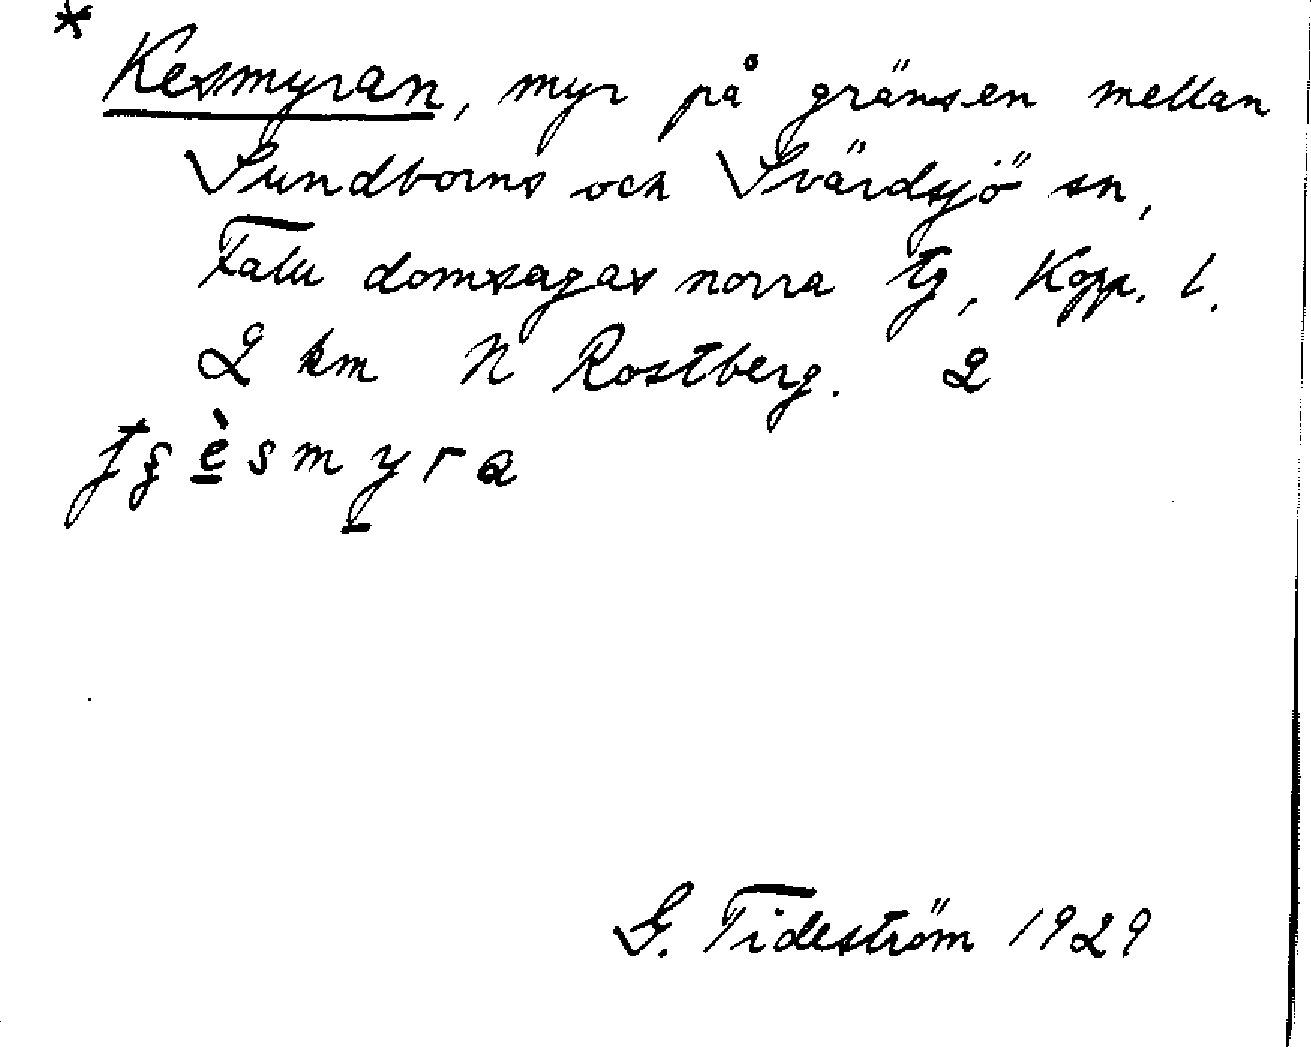 * Kesmyran, myr på gränsen mellan
Sundborns och Svärdsjö sn,
Falu domsagas norra tg, Kopp. l.
2 km N Rostberg. 2
G. Tideström 1929